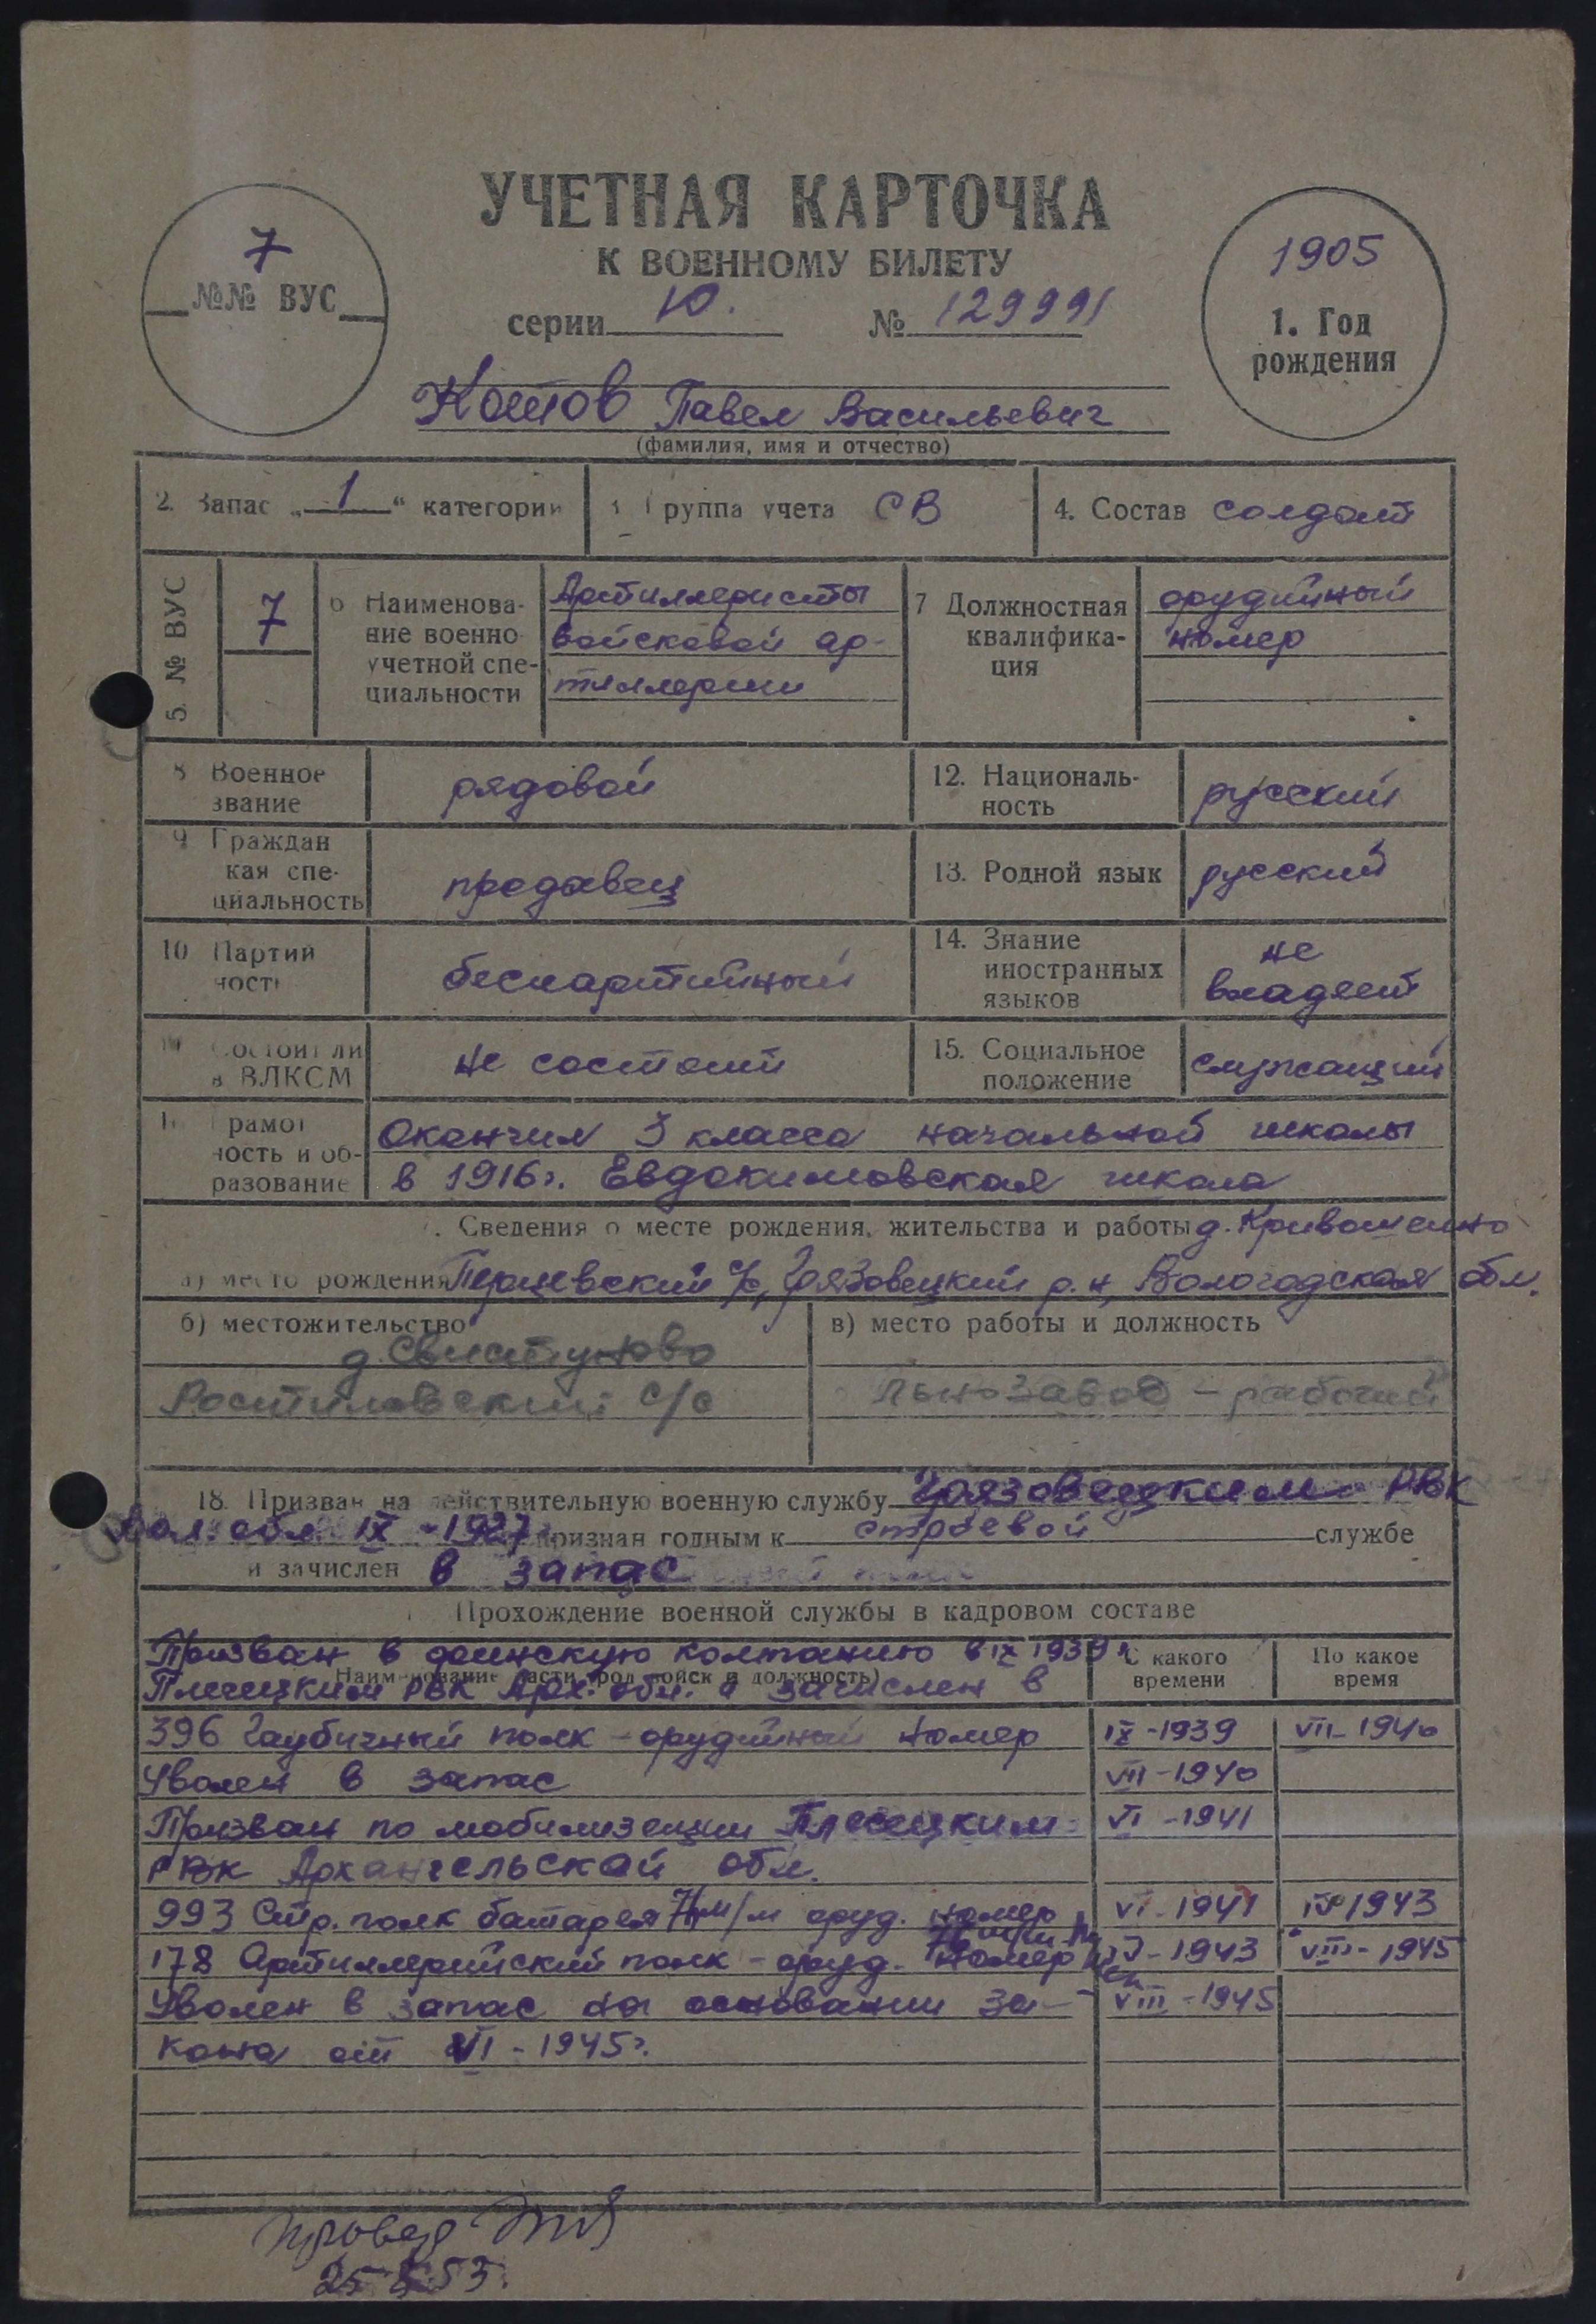 УЧЕТНАЯ КАРТОЧКА
К ВОЕННОМУ БИЛЕТУ
серии Ю. № 129991
7
№№ ВУС
1905
1. Год
рождения
Котов Павел Васильевич
(фамилия, имя и отчество)
2. Запас „ 1 “ категории
Группа учета СВ
4. Состав солдат
5. № ВУС
7
6 Наименова-
ние военно
учетной спе-
циальности
Артиллеристы
войсковой ар-
тиллерии
7 Должностная
квалифика-
ция
орудийный
номер
8 Военное
звание
рядовой
12. Националь-
ность
русский
9 Граждан
кая спе-
циальность
продавец
13. Родной язык
русский
10 Партий
ность
беспартийный
14. Знание
иностранных
языков
не
владеет
Состоит ли
в ВЛКСМ
не состоит
15. Социальное
положение
служащий
Грамот
ность и об-
разование
Окончил 3 класса начальной школы
в 1916г. Евдокимовская школа
Сведения о месте рождения, жительства и работы д.
а) место рождения Перцевский с/с, Грязовецкий р.н, Вологодская обл.
б) местожительство
д. Свистуново
Ростиловский с/с
в) место работы и должность
Льнозавод - рабочий
18. Призван на действительную военную службу Грязовецким РВК
Вол. обл. IX - 1927 признан годным к строевой службе
и зачислен в запас
Прохождение военной службы в кадровом составе
Призван в финскую компанию в IX 1939 г.
Наименование части, род войск и должность)
Плесецким РВК Арх. обл. и зачислен в
С какого
времени
По какое
время
396 Гаубичный полк - орудийный номер IX-1939 VII-1940
Уволен в запас VII-1940
Призван по мобилизации Плесецким VI-1941
РВК Архангельской обл.
993 Стр. полк батарея м/м оруд. номер VI-1941 1943
178 Артиллерийский полк - оруд. номер 1943 VIII-1945
Уволен в запас на основании за- VIII-1945
кона от VI-1945г.
Провер
53.